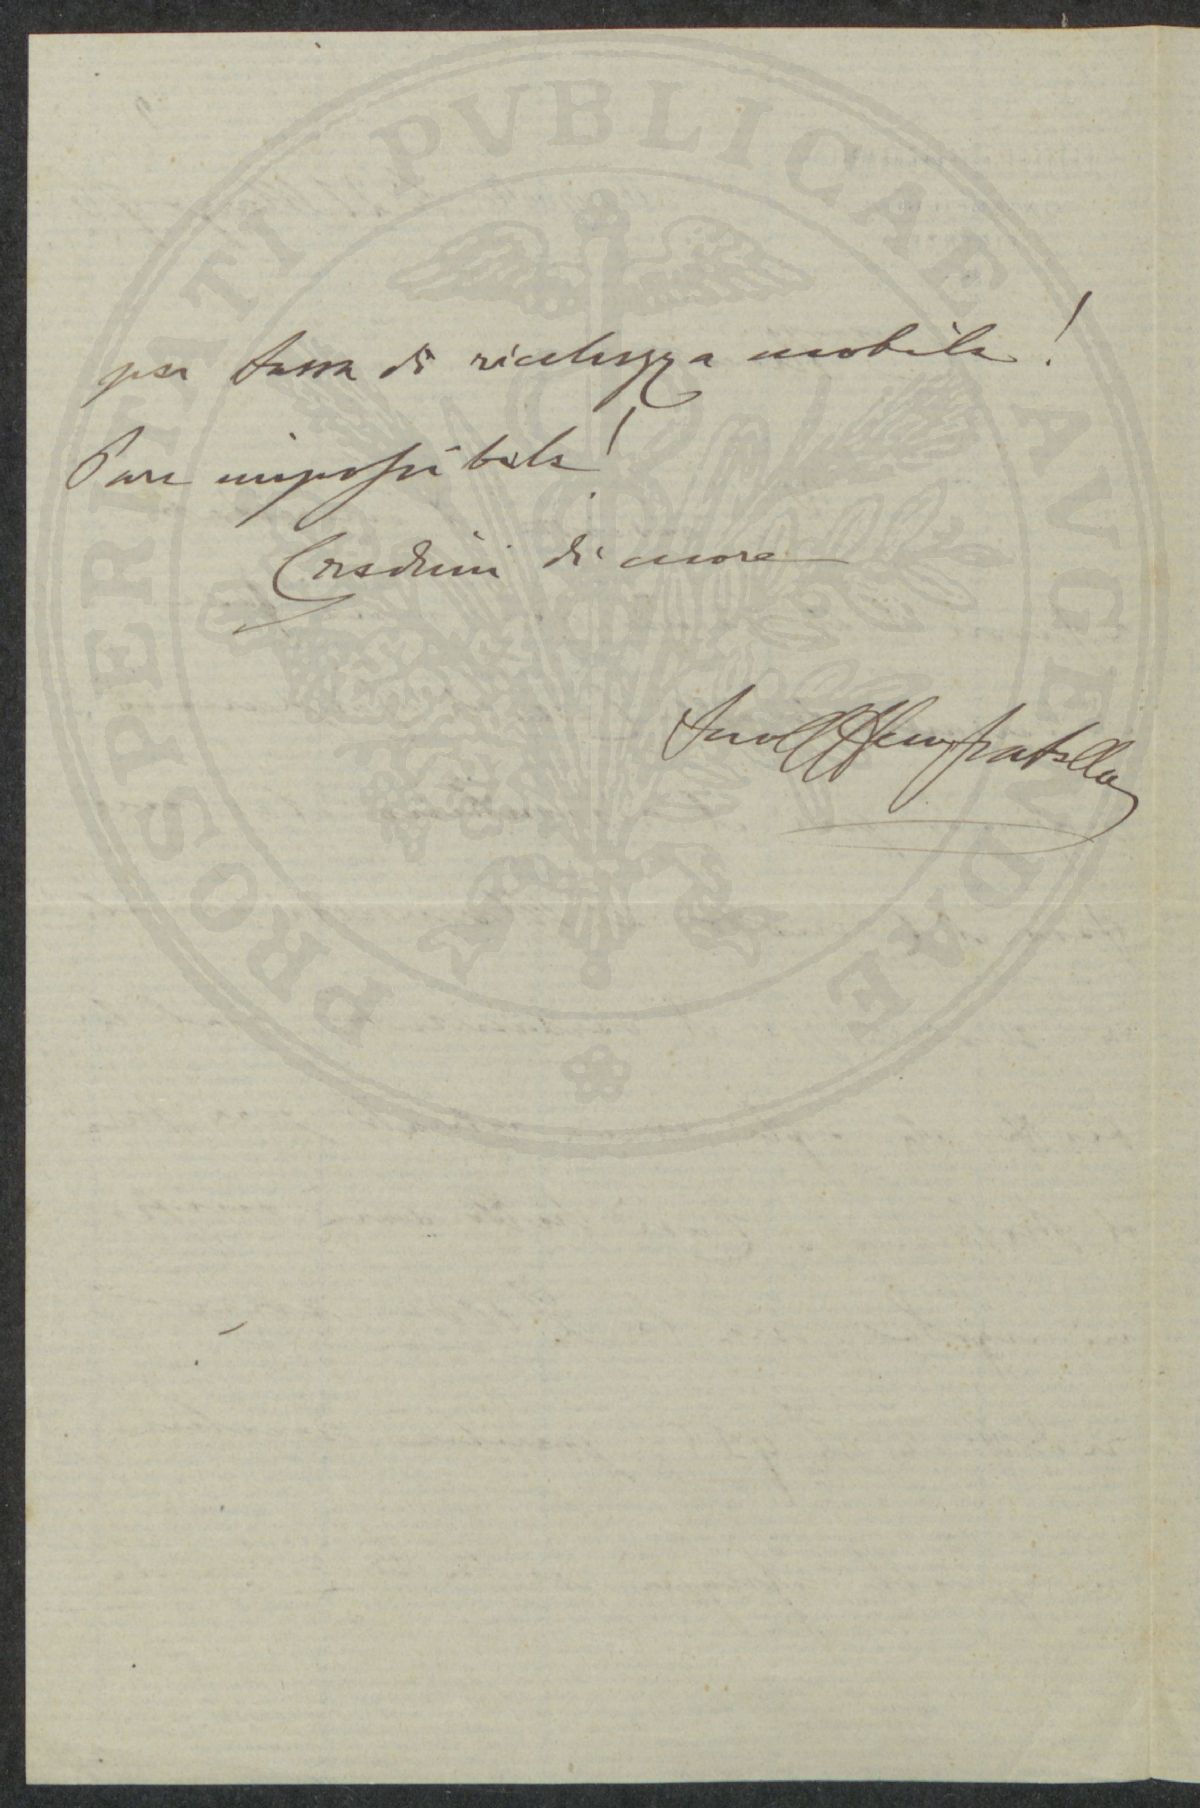 PROSPERITATI PVBLICAE AVGENDAE
per tassa di ricchezza mobile!
Pare impossibile!
Credimi di cuore